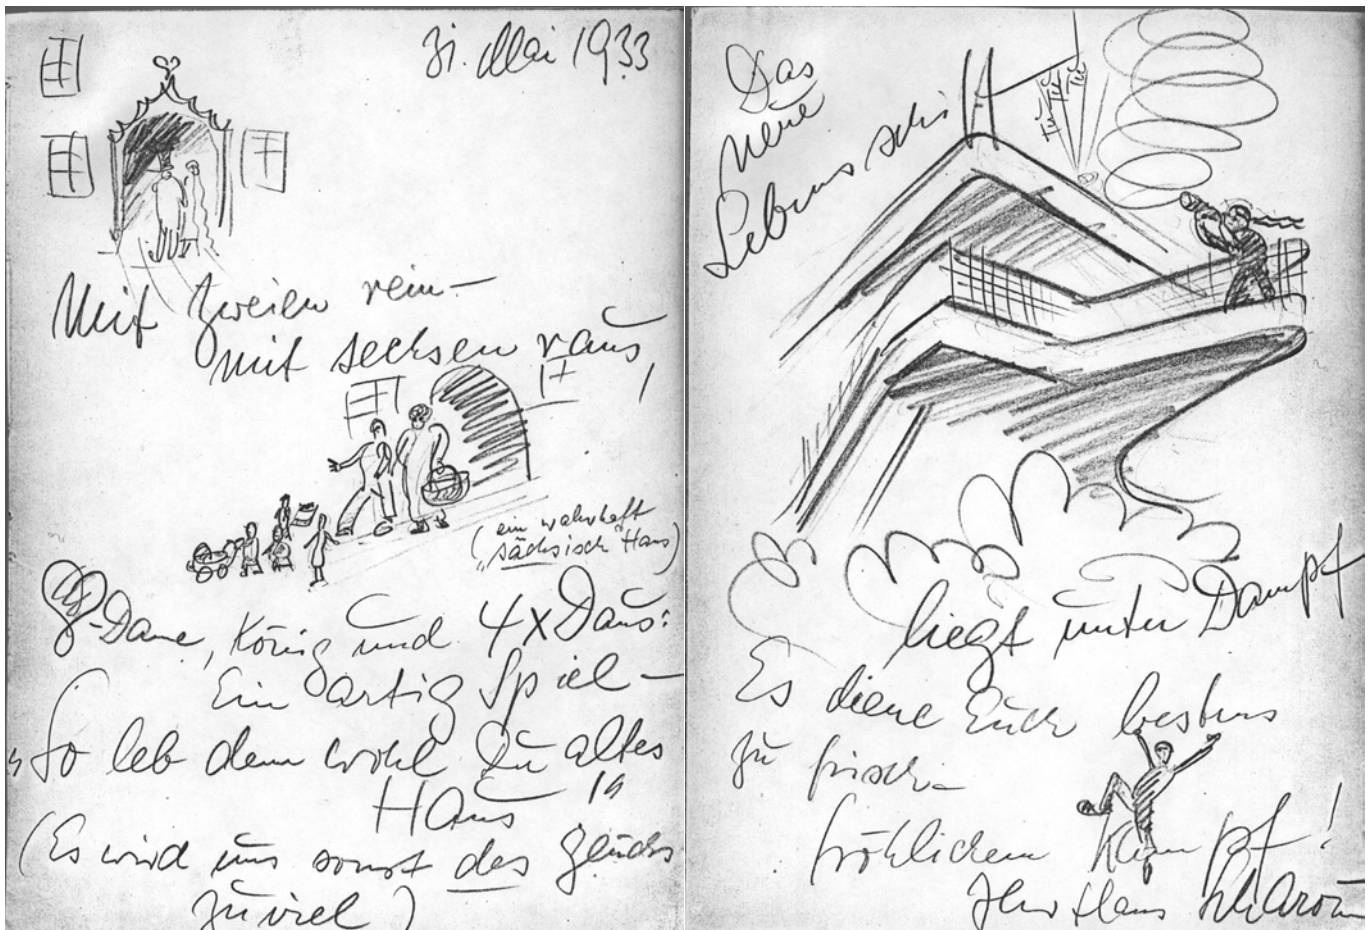 31. Mai 1933
Mit Zweien rein –
mit sechsen raus
(ein wahrhaft
„sächsisch" Haus)
Herz-Dame, König und 4 x Daus:
Ein artig Spiel –
„So leb denn wohl Du altes
Haus"
(Es wird uns sonst des Glücks
zuviel)
Das
neue
Lebensschi
Tu Tu Tu
liegt unter Dampf
Es diene Euch bestens
zu frisch-
fröhlichem Kampf!
Ihr Hans Scharoun